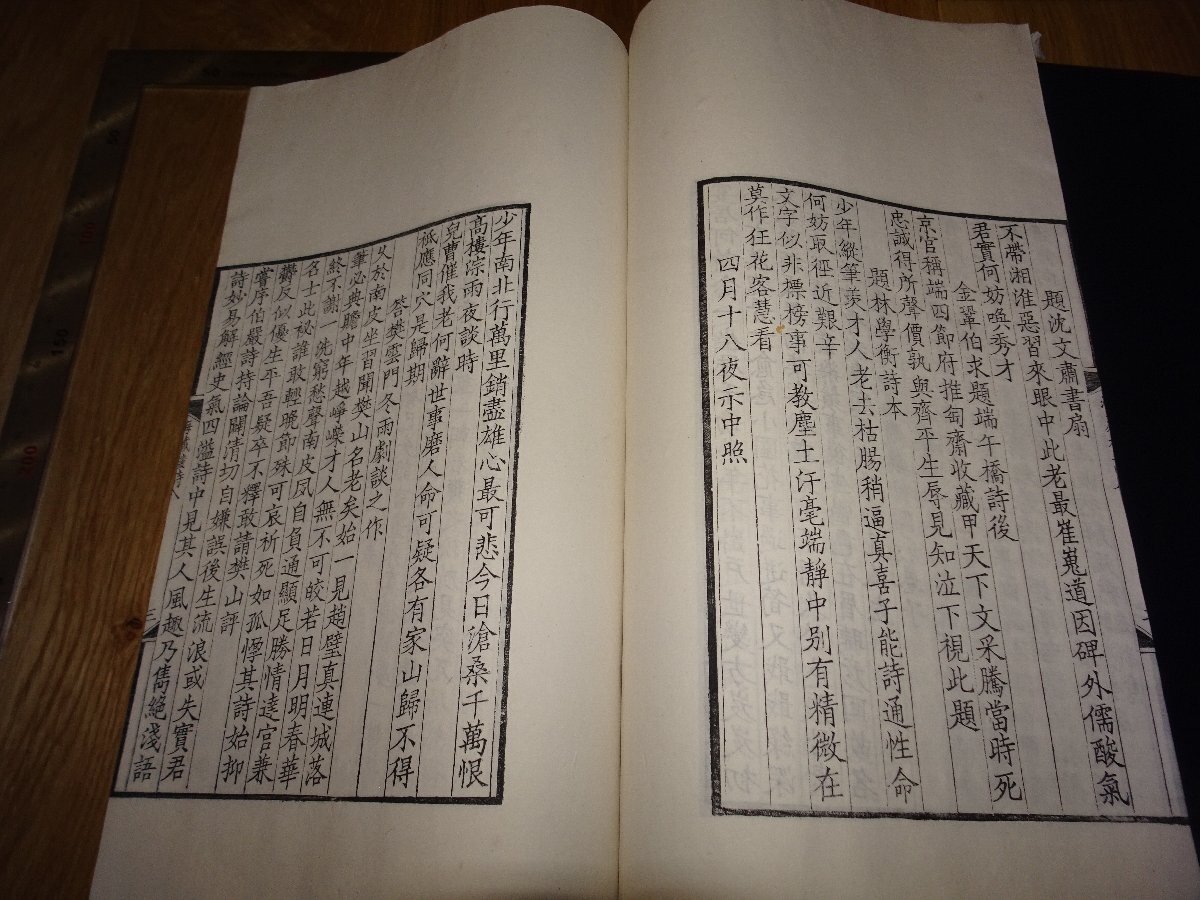 題沈文肅書扇
不帶湘淮惡習來眼中此老最崔嵬道因碑外儒酸氣
君實何妨喚秀才
金鞏伯求題端午橋詩後
京官稱端四節府推匋齋收藏甲天下文采騰當時死
忠誠得所聲價孰與齊平生辱見知泣下視此題
題林學衡詩本
少年縱筆羨才人老去枯腸稍逼真喜子能詩通性命
何妨取徑近艱辛
文字似非標榜事可教塵土汙毫端靜中別有精微在
莫作狂花客慧看
四月十八夜示中照
少年南北行萬里銷盡雄心最可悲今日滄桑千萬恨
高樓淙雨夜談時
兒曹催我老何辭世事磨人命可疑各有家山歸不得
祗應同穴是歸期
答樊雲門冬雨劇談之作
久於南皮坐習聞樊山名老矣始一見趙璧真連城落
筆必典贍中年越崢嶸才人無不可皎若日月明春華
終不謝一洗窮愁聲南皮夙自負通顯足勝情達官兼
名士此祕誰敢輕晚節殊可哀祈死如孤惸其詩始抑
鬱反似優生平吾疑卒不釋敢請樊山評
嘗序伯嚴詩持論闢清切自嫌誤後生流浪或失實君
詩妙易解經史氣四溢詩中見其人風趣乃雋絕淺語
三